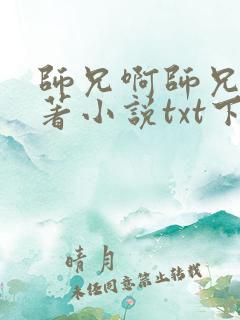 師兄啊師兄
著小説txt下
晴月
未经同意禁止转载